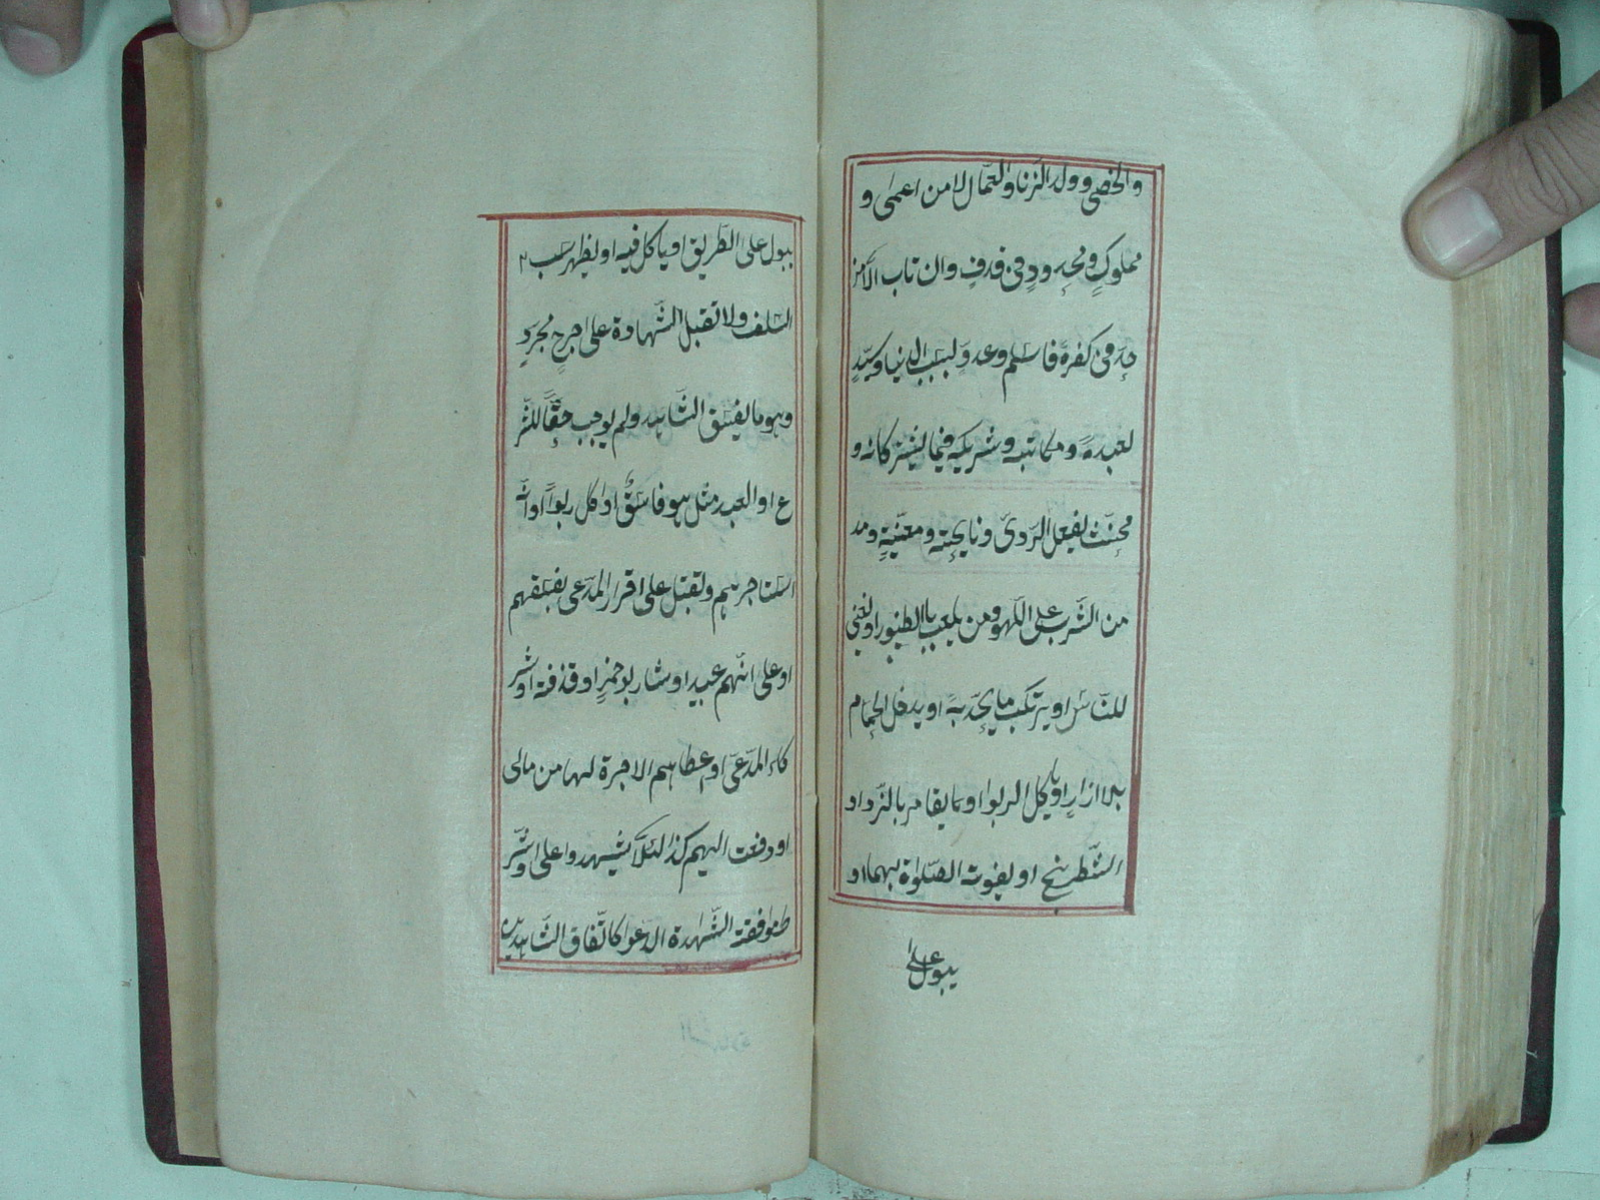 والخصى وولد الزنا والعمّال لا من اعمى و
مملوكٍ ومحدودٍ فى قذفٍ وان تاب الّا من
حدّ فى كفرهٖ فاسلم وعدوّ لسبب الدنيا وسيّدٍ
لعبدهٖ ومكاتبه وشريكهٖ فيما يشتركانه و
مخنّث يفعل الردىّ ونايحته ومغنّيةٍ ومد
من الشّرب على اللّهو ومن يلعب بالطنبور او يغنى
للنّاس او يرتكب ما يحدّ به او يدخل الحمام
بلا ازارٍ او ياكل الربوا او يقامر بالنّرد او
الشّطرنج او يفوت الصّلوٰة بهما او
يبول على
يبول على الطّريق او ياكل فيه او يظهر سب
السّلف ولا تقبل الشّهادة على جرحٍ مجردٍ
وهو ما يفسّق الشّاهد ولم يوجب حقّاً للشّر
ع او العبد مثل هو فاسقٌ او اكل ربواً او انّه
استاجرهم وتقبل على اقرار المدّعى بفسقهم
او على انّهم عبيد او شاربو خمرٍ او قذفة او شر
كاء المدّعى او اعطاهم الاجرة لها من مالى
او دفعت اليهم كذا لئلّا يشهدوا على وشر
ط موافقة الشّهدة الدّعوا كاتّفاق الشّاهدين